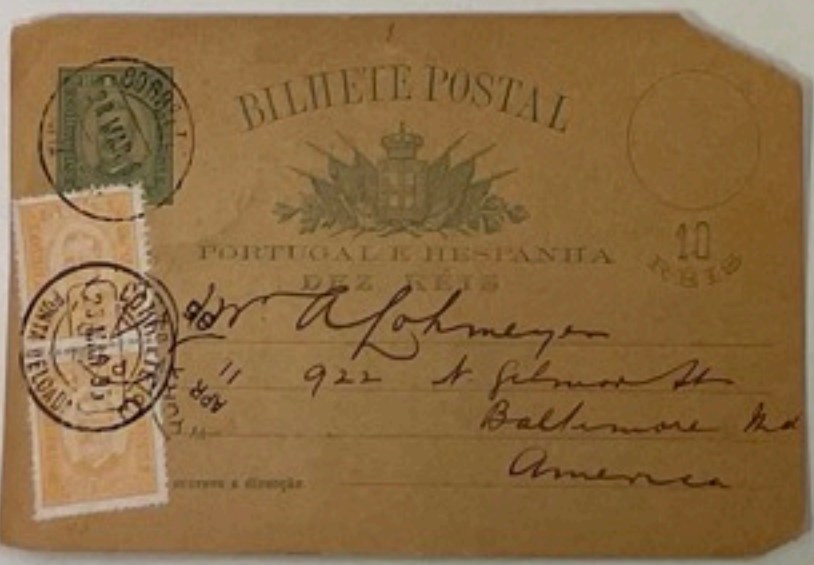 BILHETE POSTAL
PORTUGAL E HESPANHA
DEZ RÉIS
10
RÉIS
CORREIO
PONTA DELGADA
APR 11
95
A Lohmeyer
922 N. Gilmor St
Baltimore Md
America
escreve a direcção